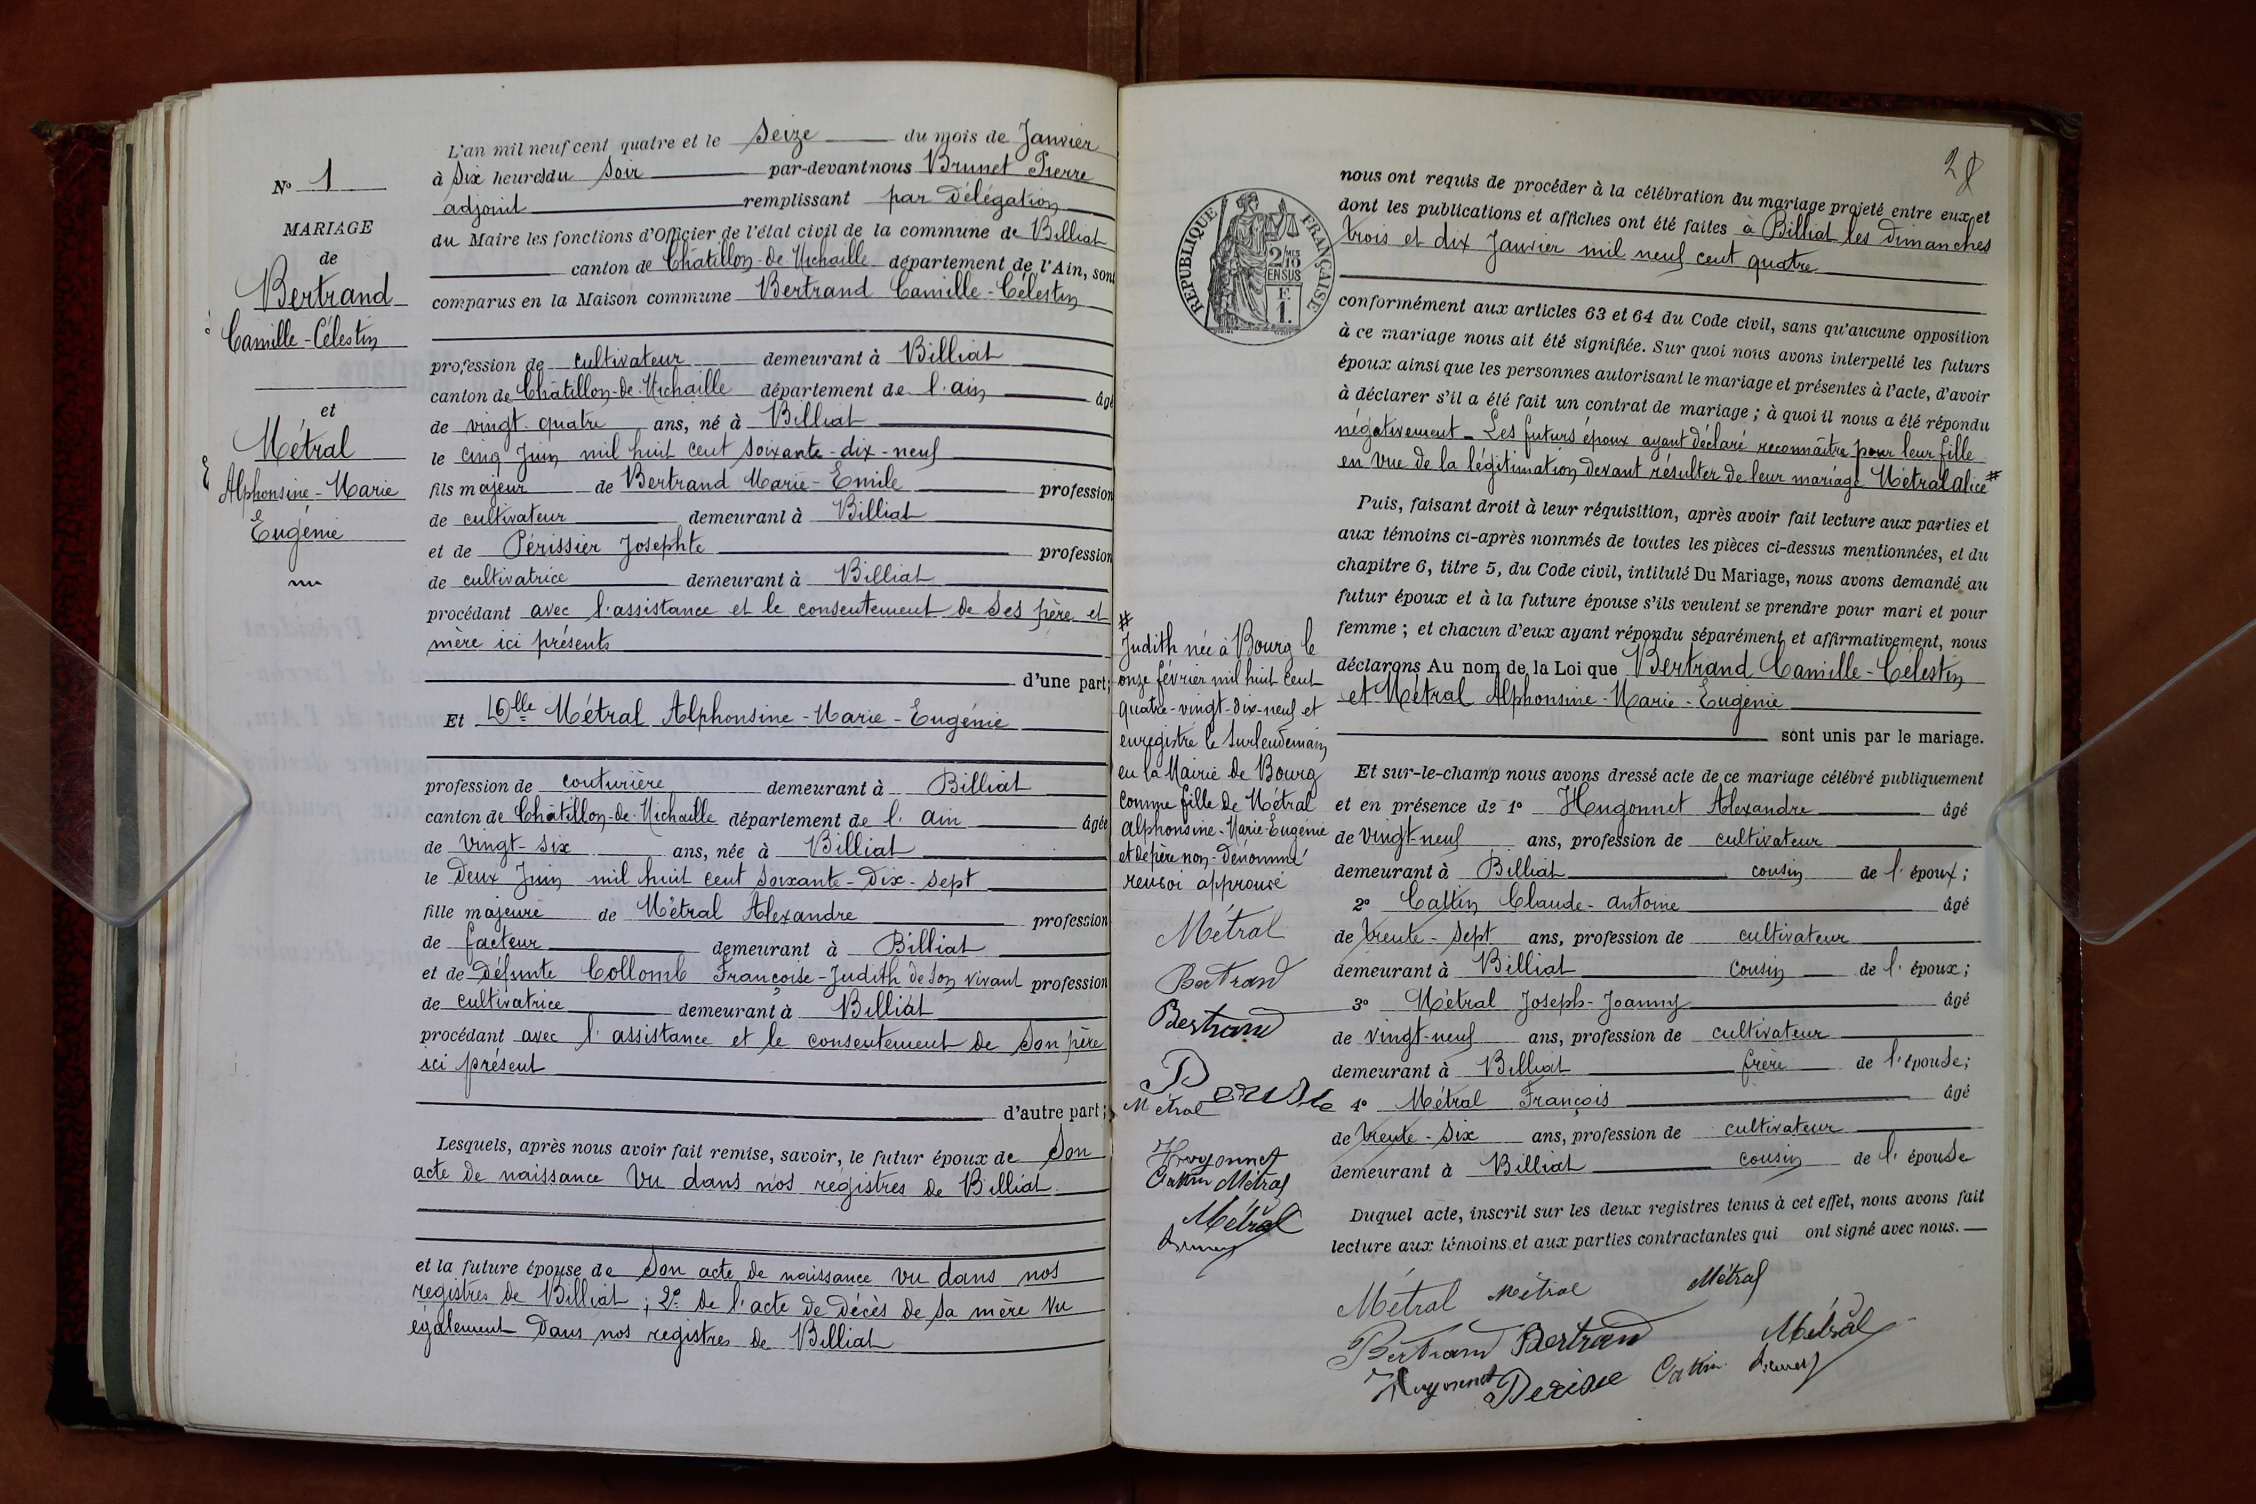 N° 1
MARIAGE
de
Bertrand
Camille-Célestin
et
Métral
Alphonsine-Marie
Eugénie
L'an mil neuf cent quatre et le Seize du mois de Janvier
à Six heures du Soir par-devant nous Brunet Pierre
adjoint remplissant par délégation
du Maire les fonctions d'Officier de l'état civil de la commune de Billiat
canton de Chatillon-de-Michaille département de l'Ain, sont
comparus en la Maison commune Bertrand Camille-Célestin
profession de cultivateur demeurant à Billiat
canton de Châtillon-de-Michaille département de l'ain âgé
de vingt-quatre ans, né à Billiat
le cinq Juin mil huit cent soixante-dix-neuf
fils majeur de Bertrand Marie-Emile profession
de cultivateur demeurant à Billiat
et de Périssier Josephte profession
de cultivatrice demeurant à Billiat
procédant avec l'assistance et le consentement de Ses père et
mère ici présents
d'une part;
Et Dlle Métral Alphonsine-Marie-Eugénie
profession de couturière demeurant à Billiat
canton de Châtillon-de-Michaille département de l'ain âgée
de vingt-six ans, née à Billiat
le deux Juin mil huit cent soixante-dix-sept
fille majeure de Métral Alexandre profession
de facteur demeurant à Billiat
et de défunte Collomb Françoise-Judith de son vivant profession
de cultivatrice demeurant à Billiat
procédant avec l'assistance et le consentement de Son père
ici présent
d'autre part;
Lesquels, après nous avoir fait remise, savoir, le futur époux de Son
acte de naissance vu dans nos registres de Billiat
et la future épouse de Son acte de naissance vu dans nos
registres de Billiat; 2° de l'acte de décès de sa mère vu
également dans nos registres de Billiat
28
REPUBLIQUE FRANÇAISE
2/10
EN SUS
F.
1.
nous ont requis de procéder à la célébration du mariage projeté entre eux et
dont les publications et affiches ont été faites à Billiat les dimanches
trois et dix Janvier mil neuf cent quatre
conformément aux articles 63 et 64 du Code civil, sans qu'aucune opposition
à ce mariage nous ait été signifiée. Sur quoi nous avons interpellé les futurs
époux ainsi que les personnes autorisant le mariage et présentes à l'acte, d'avoir
à déclarer s'il a été fait un contrat de mariage; à quoi il nous a été répondu
négativement - Les futurs époux ayant déclaré reconnaître pour leur fille
en vue de la légitimation devant résulter de leur mariage Métral alice #
Puis, faisant droit à leur réquisition, après avoir fait lecture aux parties et
aux témoins ci-après nommés de toutes les pièces ci-dessus mentionnées, et du
chapitre 6, titre 5, du Code civil, intitulé Du Mariage, nous avons demandé au
futur époux et à la future épouse s'ils veulent se prendre pour mari et pour
femme; et chacun d'eux ayant répondu séparément et affirmativement, nous
déclarons Au nom de la Loi que Bertrand Camille-Célestin
et Métral Alphonsine-Marie-Eugénie
sont unis par le mariage.
Et sur-le-champ nous avons dressé acte de ce mariage célébré publiquement
et en présence de 1° Hugonnet Alexandre âgé
de vingt-neuf ans, profession de cultivateur
demeurant à Billiat cousin de l'époux;
2° Cattin Claude-antoine âgé
de trente-sept ans, profession de cultivateur
demeurant à Billiat cousin de l'époux;
3° Métral Joseph-Joanny âgé
de vingt-neuf ans, profession de cultivateur
demeurant à Billiat frère de l'épouse;
4° Métral François âgé
de trente-six ans, profession de cultivateur
demeurant à Billiat cousin de l'épouse
Duquel acte, inscrit sur les deux registres tenus à cet effet, nous avons fait
lecture aux témoins et aux parties contractantes qui ont signé avec nous.
Métral Métral Métral
Bertrand Bertrand Métral
Hugonnet Cattin Brunet
#
Judith née à Bourg le
onze février mil huit cent
quatre-vingt-dix-neuf et
enregistré le surlendemain
en la Mairie de Bourg
comme fille de Métral
alphonsine-Marie-Eugénie
et de père non-dénommé
renvoi approuvé
Métral
Bertrand
Bertrand
Métral
Hugonnet
Cattin Métral
Métral
Brunet